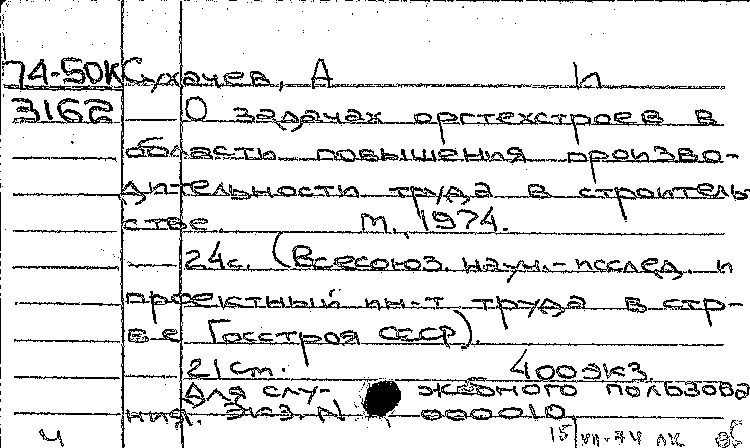 74-50К Сухачев, А h
3162 О задачах оргтехстроев в
области повышения произво-
дительности труда в строитель
стве. М., 1974.
24с. (Всесоюз. науч.-исслед. и
проектный ин-т труда в стр-
ве Госстроя СССР).
21 см. 400экз
Для слу- жебного пользова
ния. Экз. N 000010
4 15 VII-74 ЛК